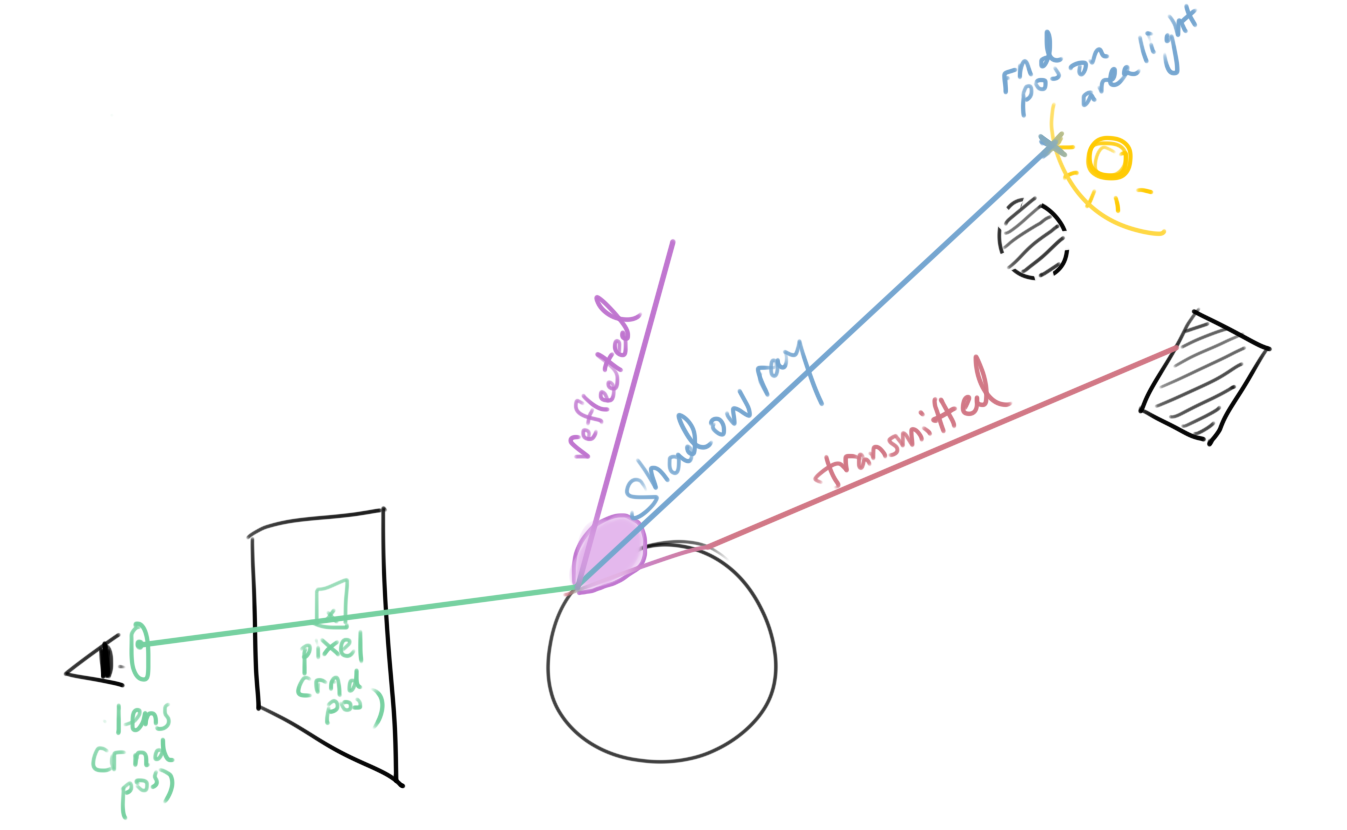 rnd
pos on
area light
reflected
shadow ray
transmitted
pixel
(rnd
pos)
lens
(rnd
pos)